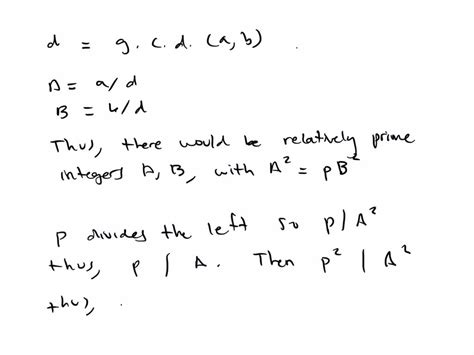 d = g.c.d. (a, b) .
A = a/d
B = b/d
Thus, there would be relatively prime
integers A, B, with A² = pB²
p divides the left so p | A²
thus, p | A. Then p² | A²
thus, .